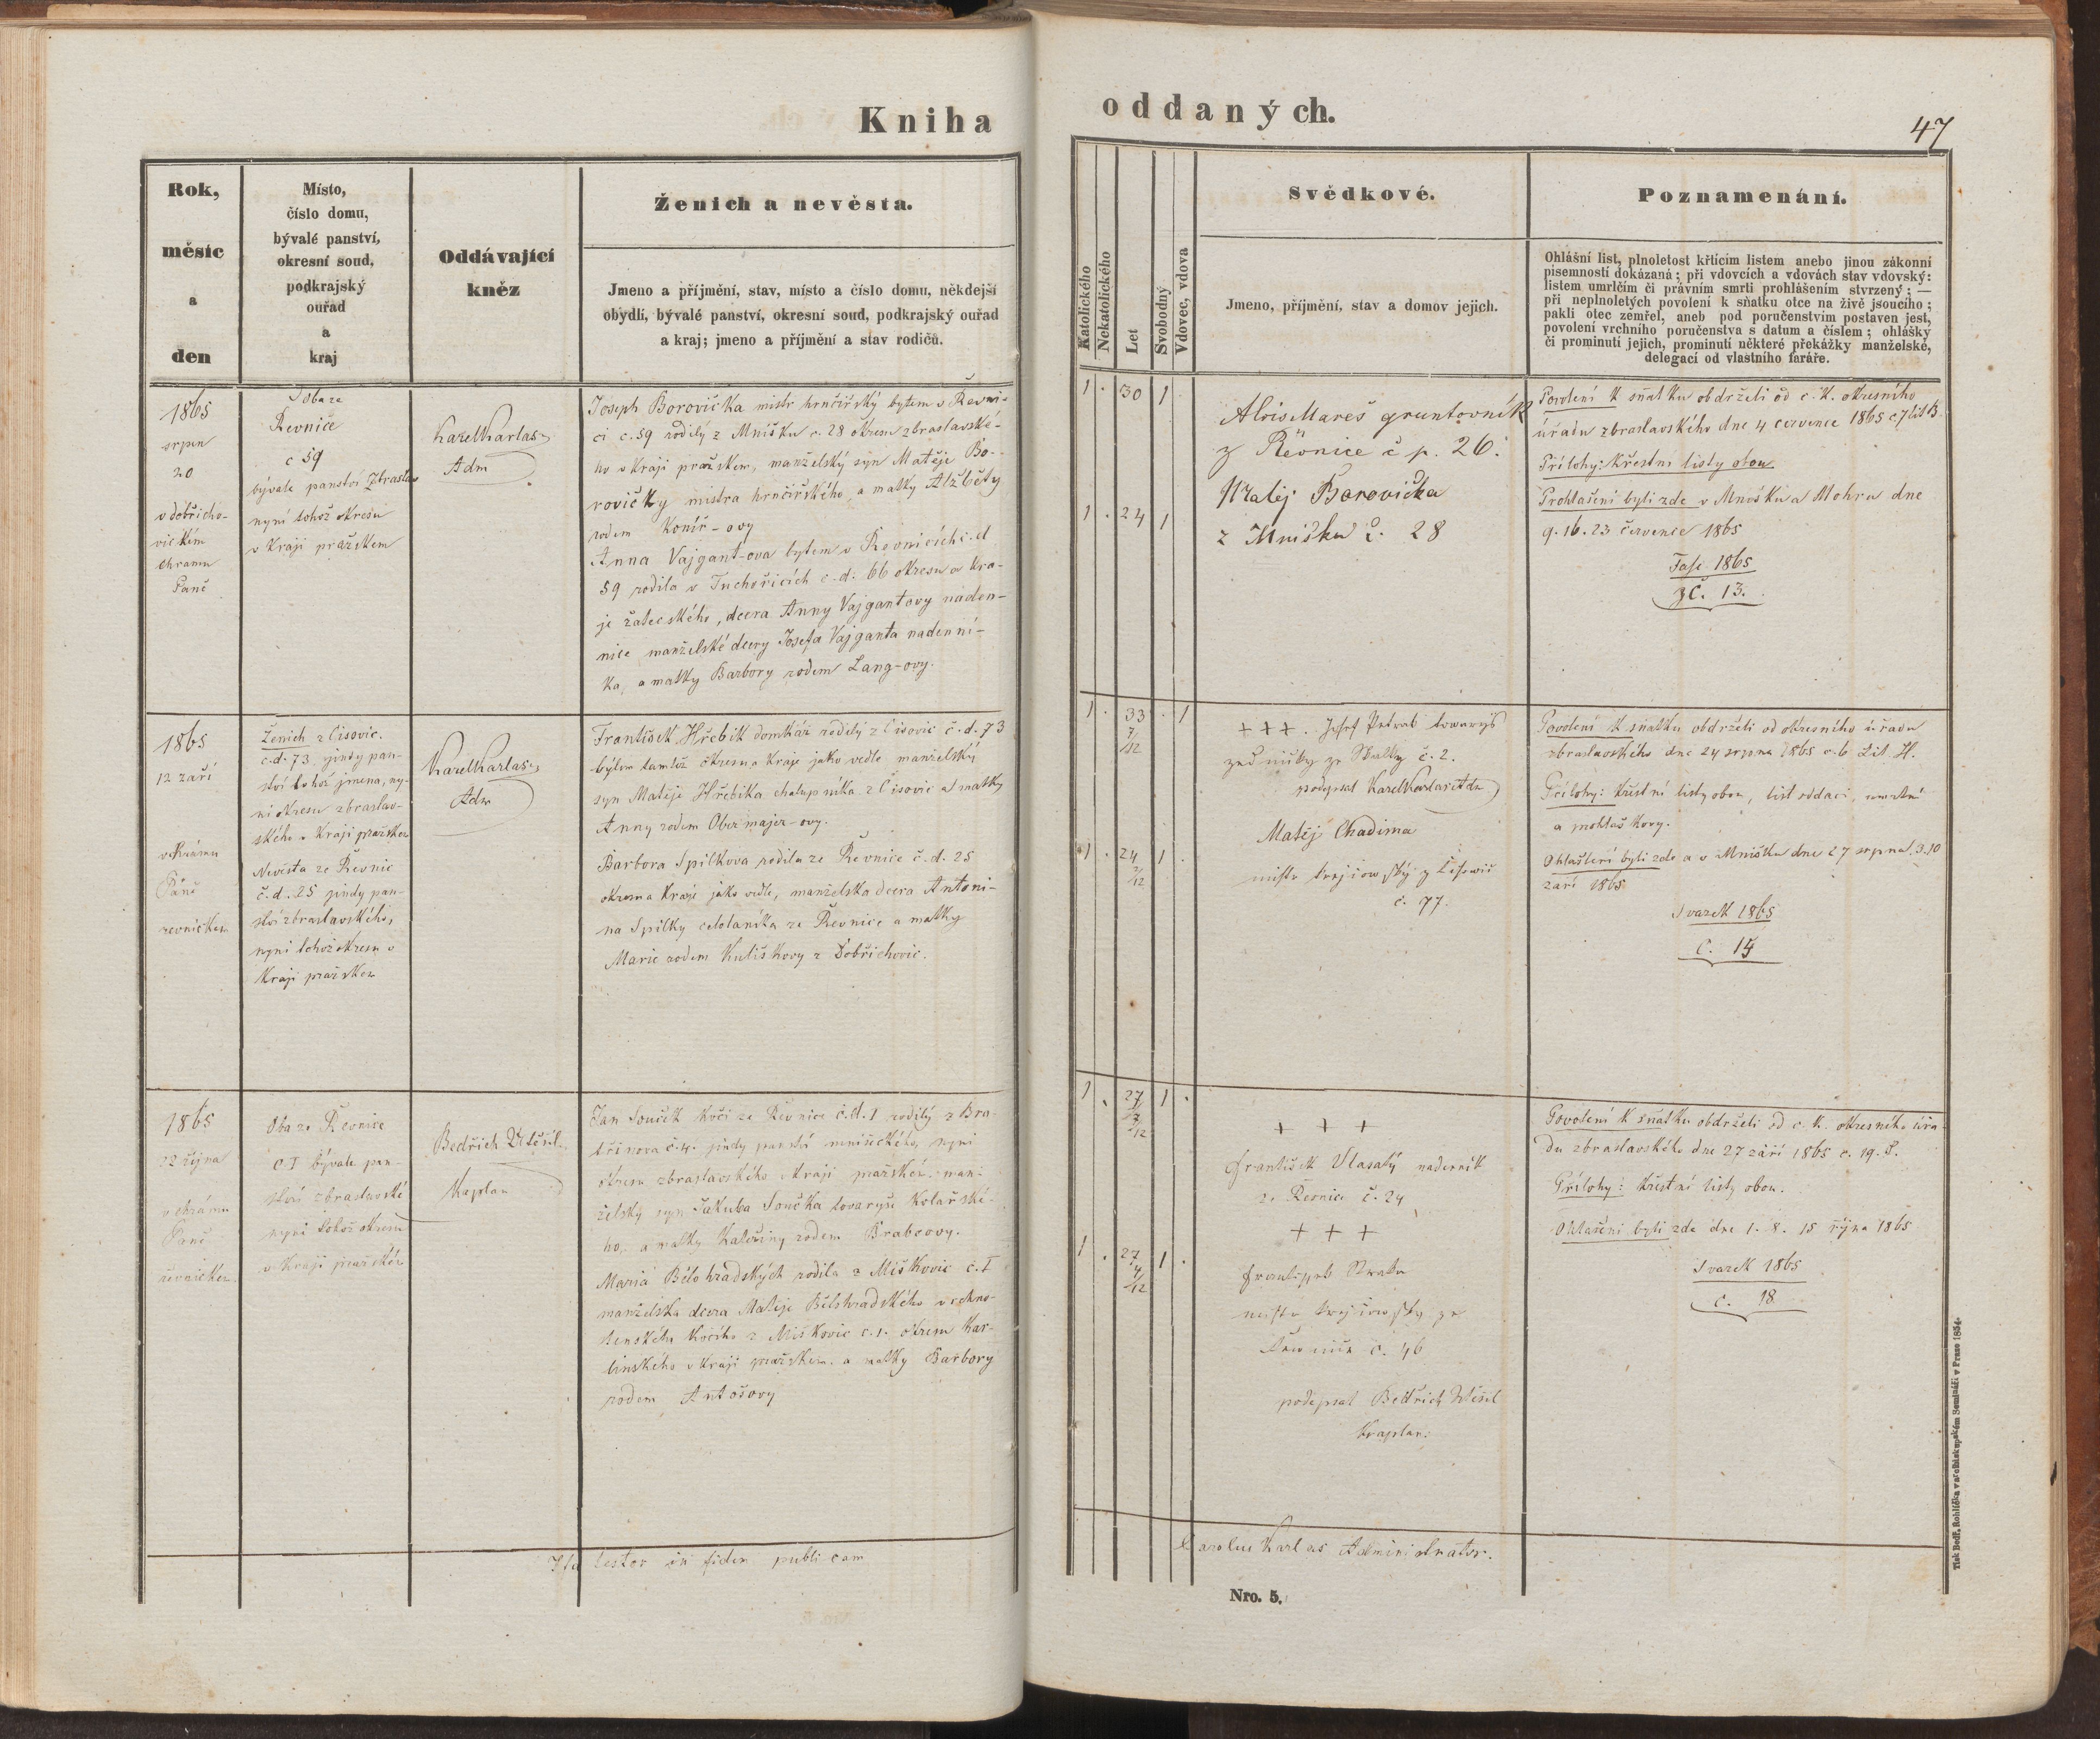 Kniha
oddaných.
47
Rok,
měsíc
a
den
Místo,
číslo domu,
bývalé panství,
okresní soud,
podkrajský
ouřad
a
kraj
Oddávající
kněz
Ženich a nevěsta.
Jmeno a příjmění, stav, místo a číslo domu, někdejší
obydlí, bývalé panství, okresní soud, podkrajský ouřad
a kraj; jmeno a příjmění a stav rodičů.
Katolického
Nekatolického
Let
Svobodný
Vdovec, vdova
Svědkové.
Jmeno, příjmění, stav a domov jejich.
Poznamenání.
Ohlášní list, plnoletost křtícím listem anebo jinou zákonní
písemností dokázaná; při vdovcích a vdovách stav vdovský:
listem umrlčím či právním smrti prohlášením stvrzený; —
při neplnoletých povolení k sňatku otce na živě jsoucího;
pakli otec zemřel, aneb pod poručenstvím postaven jest,
povolení vrchního poručenstva s datum a číslem; ohlášky
či prominutí jejich, prominutí některé překážky manželské,
delegací od vlastního faráře.
1865
srpen
20
v dobřicho-
vickém
chramu
Páně
Oba ze
Řevnice
c 59
bývale panství Zbraslav
nyní tohož okresu
v kraji pražskem
Karel Karlas
Adm
Joseph Borovička mistr hrnčířský bytem v Řevni-
ci c. 59 rodilý z Mníšku c. 28 okresu zbraslavské-
ho v kraji pražskem, manželský syn Matěje Bo-
rovičky mistra hrnčířského, a matky Alžběty
rodem Koníř-ovy
Anna Vajgant-ova bytem v Řevnicích c. d
59 rodila v Tuchořicích c. d. 66 okresu a kra-
je žateckého, dcera Anny Vajgantovy naden-
nice manželské dcery Josefa Vajganta nadenní-
ka, a matky Barbory rodem Lang-ovy.
1 . 30 1
1 . 24 1
Alois Mareš gruntovník
z Řevnice č p. 26.
Matěj Borovička
z Mníšku č. 28
Povolení k sňatku obdrželi od c. k. okresního
úřadu zbraslavského dne 4 července 1865 c 7 lit B.
Přílohy: Křestní listy obou.
Prohlašení byli zde v Mníšku a Mohru dne
9. 16. 23 července 1865
Fasc. 1865
č. 13.
1865
12 září
v chrámu
Páně
řevnickem
Ženich z Čisovic.
č. d. 73. jindy pan-
ství tohož jmena, ny-
ní okresu zbraslav-
ského v kraji pražskem
Nevěsta ze Řevnic
č. d. 25 jindy pan-
ství zbraslavského,
nyní tohož okresu v
kraji pražskem
Karel Karlas
Adm
František Hřebík domkář rodilý z Čisovic č. d. 73
bytem tamtéž okresu a kraje jako vedle manželský
syn Matěje Hřebíka chalupníka z Čisovic a matky
Anny rodem Obermajer-ovy.
Barbora Spilkova rodila ze Řevnice č. d. 25
okresu a kraje jako vedle, manželska dcera Antoni-
na Spilky celolaníka ze Řevnice a matky
Marie rodem Kuliškovy z Dobřichovic.
1 . 33 7/12 . 1
1 . 24 1 .
+++. Josef towaryš
zednický ze Skalky č. 2.
podepsal Karel Karlas Adm
Matěj Chadima
mistr krejčowský z Čisowic
č. 77.
Povolení k sňatku obdrželi od okresního úřadu
zbraslavského dne 24 srpna 1865 c. 6 Lit. H.
Přílohy: křestní listy obou, list oddací, umrtní
a
Ohlašení byli zde a v Mníšku dne 27 srpna, 3. 10
září 1865
Svazek 1865
č. 15
1865
22 října
v chrámu
Páně
řevnickem
Oba ze Řevnice
c. I bývale pan-
ství zbraslavské
nyní tohož okresu
v kraji pražském
Bedřich Utěšil
Kaplan
Jan Souček kočí ze Řevnice č. d. 1 rodilý z Bra-
třinova č. 4. jindy panství mníšeckého, nyní
okresu zbraslavského v kraji pražském man-
želský syn Jakuba Součka tovaryše kolařské-
ho, a matky Kateřiny rodem Brabcovy.
Maria Bělohradských rodila z Miškovic č. I
manželska dcera Matěje Bělohradského vrchno-
stenského kočího z Miškovic c. 1. okresu Kar-
linského v kraji pražskem. a matky Barbory
rodem Antošovy
1 . 27 1 .
1 . 27 4/12 1 .
+ + +
František Vlasatý nadenník
ze Řevnice č. 24
+ + +
František
mistr krejčowský ze
Řewnice č. 46
podepsal Bedřich Utěšil
kaplan.
Povolení k sňatku obdrželi od c. k. okresního úřa-
du zbraslavského dne 27 září 1865 c. 19. S.
Přílohy: křestní listy obou.
Ohlašeni byli zde dne 1. 8. 15 října 1865
Svazek 1865
c. 18
Ita testor in fidem publicam
Carolus Karlas Administrator.
Nro. 5.
Tisk Bedř. Rohlíčka v arcibiskupském Semináři v Praze 1854.